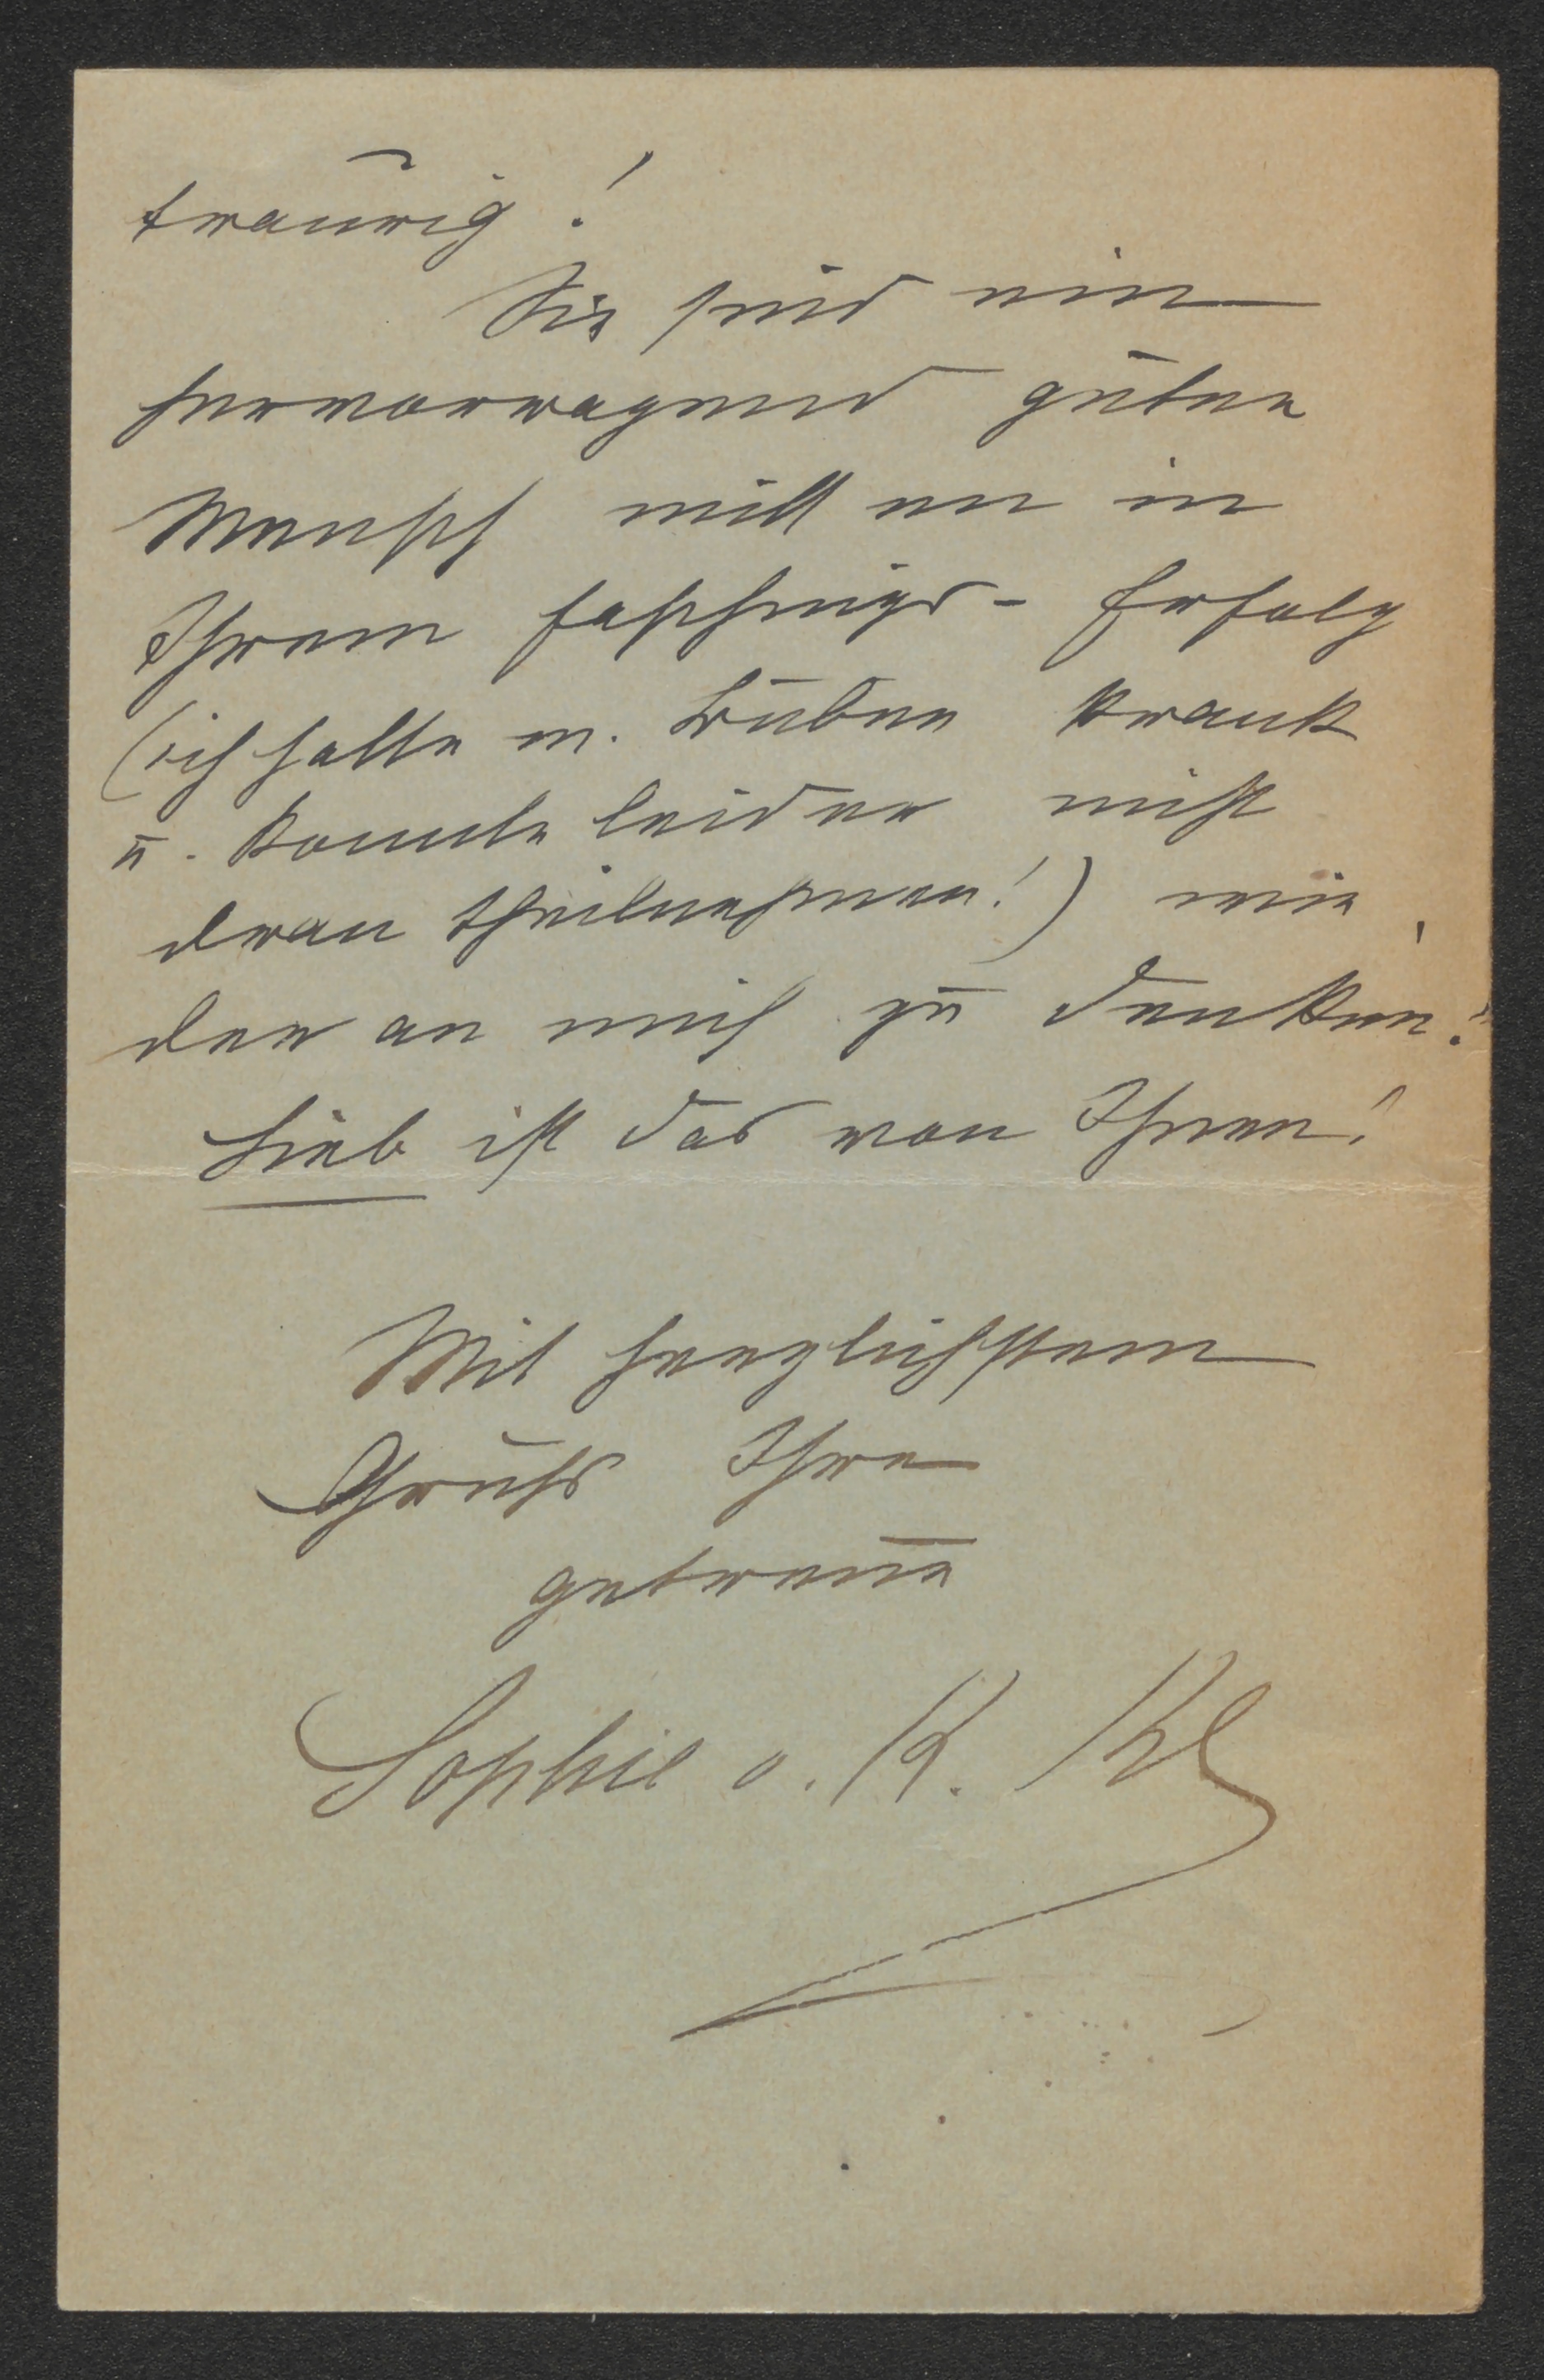 traurig!
Sie sind ein
hervorragend guter
Mensch mitten in
Ihrem Faschings-Erfolg
(ich hatte m. Buben krank
u. konnte leider nicht
dran theilnehmen!) wie
der an mich zu denken!
Lieb ist das von Ihnen!
Mit herzlichstem
Gruß Ihre
getreue
Sophie v. K.